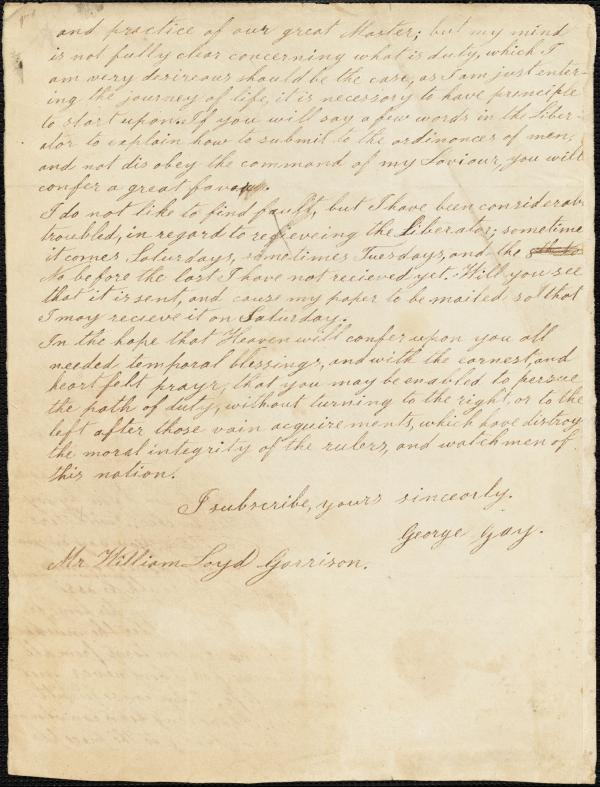 and practice of our great Master; but my mind
is not fully clear concerning what is duty, which I
am very desireous should be the case, as I am just enter-
ing the journey of life, it is necessary to have princeple
to start upon. If you will say a few words in the Liber-
ator to explain how to submit to the ordinances of men,
and not disobey the command of my Saviour, you will
confer a great favor.
I do not like to find fault, but I have been considerab
troubled, in regard to recieveing the Liberator; sometime
it comes Saturdays, sometimes Tuesdays, and the
No before the last I have not recieved yet. Will you see
that it is sent, and cause my paper to be mailed so that
I may recieve it on Saturday.
In the hope that Heaven will confer upon you all
needed temporal blessings, and with the earnest and
heart felt prayr, that you may be enabled to persue
the path of duty, without turning to the right or to the
left after those vain acquirements, which have distroy
the moral integrity of the rulers, and watchmen of
this nation.
I subscribe, yours sinceorly.
George Gay.
Mr William Loyd Garrison.